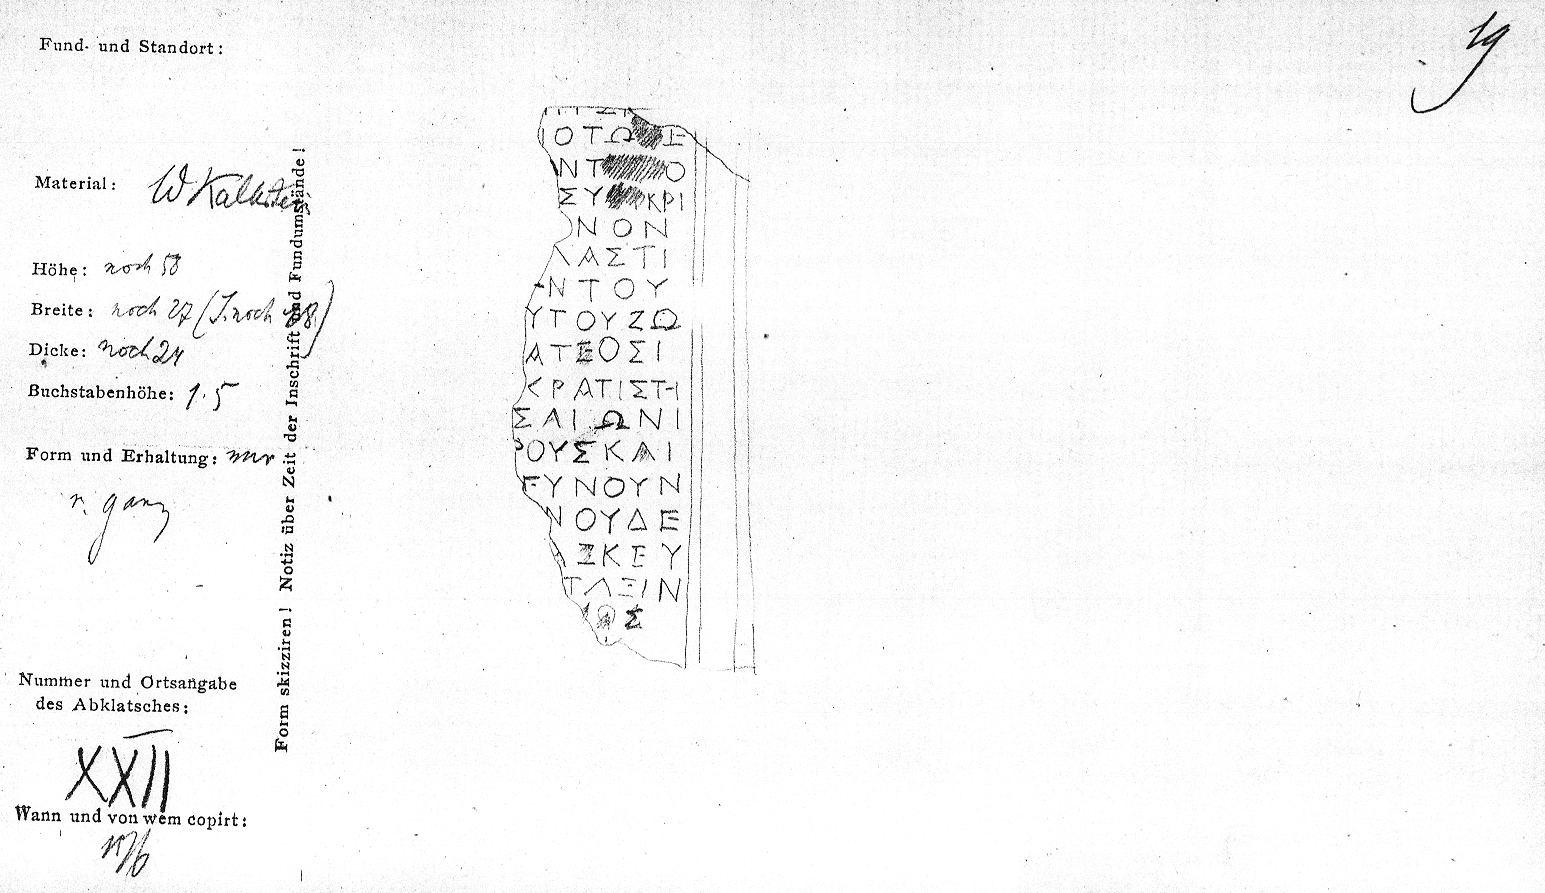 19
Fund- und Standort:
Material: W Kalkstein
Höhe: noch 58
Breite: noch 27 (I. noch 18)
Dicke: noch 24
Buchstabenhöhe: 1.5
Form und Erhaltung: nur
r. ganz
Nummer und Ortsangabe
des Abklatsches:
XXII
Wann und von wem copirt:
Form skizziren! Notiz über Zeit der Inschrift und Fundumstände!
ΟΤΩ Ε
ΝΤ Ο
ΣΥ ΚΡΙ
ΝΟΝ
ΛΑΣΤΙ
ΝΤΟΥ
ΥΤΟΥΖΩ
ΑΤΕΟΣΙ
ΚΡΑΤΙΣΤΗ
ΣΑΙΩΝΙ
ΡΟΥΣΚΑΙ
ΕΥΝΟΥΝ
ΝΟΥΔΕ
ΞΚΕΥ
ΤΛΞΙΝ
ΟΣ